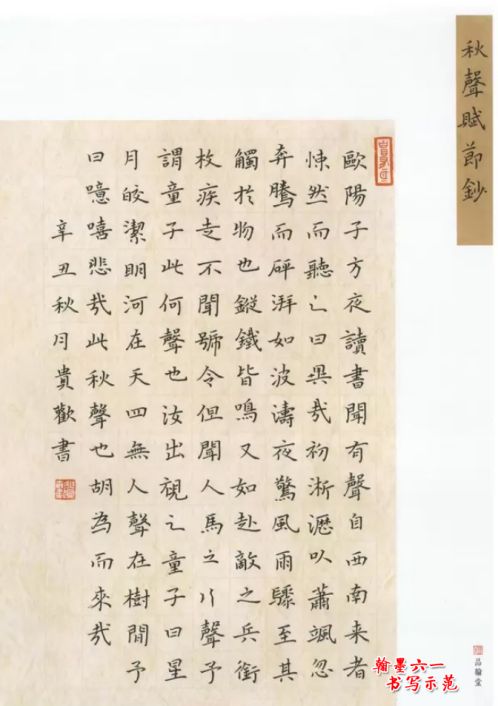 秋聲賦節鈔
歐陽子方夜讀書聞有聲自西南来者
悚然而聽之曰異哉初淅瀝以蕭颯忽
奔騰而砰湃如波濤夜驚風雨驟至其
觸於物也鏦鐵皆鳴又如赴敵之兵銜
枚疾走不聞號令但聞人馬之行聲予
謂童子此何聲也汝出視之童子曰星
月皎潔明河在天四無人聲在樹間予
曰噫嘻悲哉此秋聲也胡為而來哉
辛丑秋月貴歡書
品翰堂
翰墨六一
书写示范